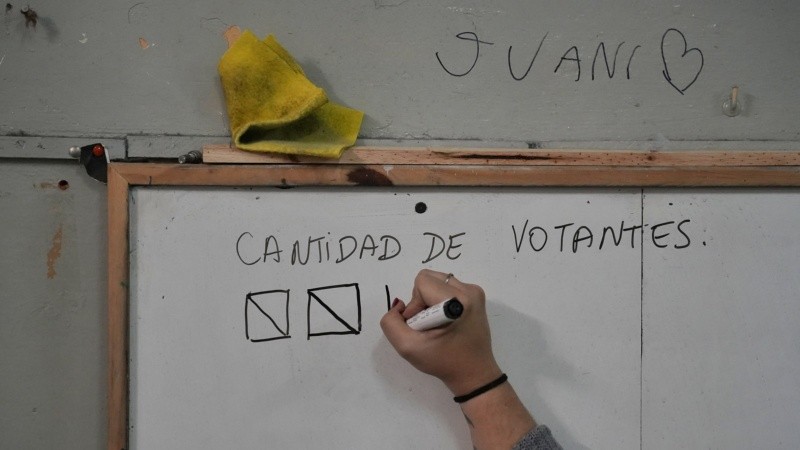 JUANI
CANTIDAD DE VOTANTES.